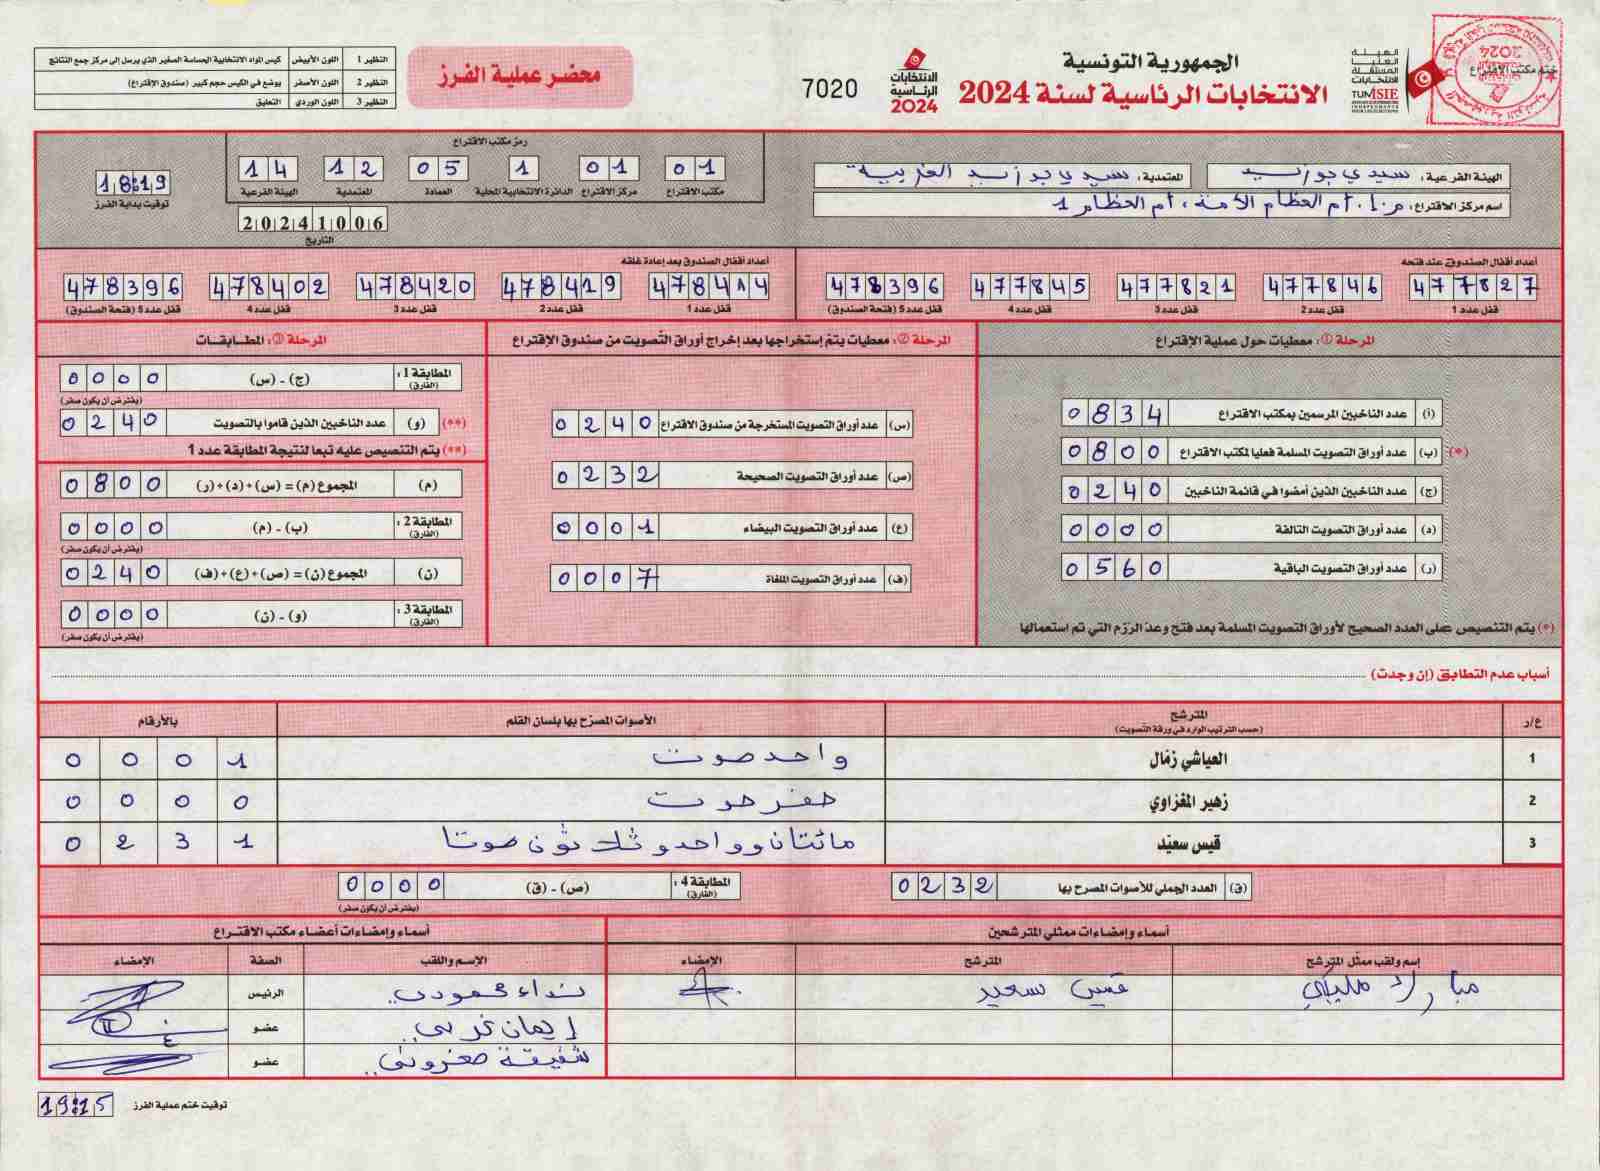 الجمهورية التونسية
الانتخابات الرئاسية لسنة 2024
الهيئة العليا المستقلة للانتخابات
TUNISIE
ختم مكتب الاقتراع
الانتخابات الرئاسية 2024
7020
محضر عملية الفرز
النظير 1 اللون الأبيض كيس المواد الانتخابية الحساسة الصغير الذي يرسل إلى مركز جمع النتائج
النظير 2 اللون الأصفر يوضع في الكيس حجم كبير (صندوق الإقتراع)
النظير 3 اللون الوردي التعليق
الهيئة الفرعية: سيدي بوزيد
المعتمدية: سيدي بوزيد الغربية
اسم مركز الاقتراع: م.إ. أم العظام الأمنة، أم العظام 1
رمز مكتب الاقتراع
01 01 1 05 12 14
مكتب الاقتراع مركز الاقتراع الدائرة الانتخابية المحلية العمادة المعتمدية الهيئة الفرعية
20241006
التاريخ
18:19
توقيت بداية الفرز
أعداد أقفال الصندوق عند فتحه
477827 477846 477821 477845 478396
قفل عدد 1 قفل عدد 2 قفل عدد 3 قفل عدد 4 قفل عدد 5 (فتحة الصندوق)
أعداد أقفال الصندوق بعد إعادة غلقه
478414 478419 478420 478402 478396
قفل عدد 1 قفل عدد 2 قفل عدد 3 قفل عدد 4 قفل عدد 5 (فتحة الصندوق)
المرحلة ①: معطيات حول عملية الإقتراع
(أ) عدد الناخبين المرسمين بمكتب الاقتراع 0834
(*) (ب) عدد أوراق التصويت المسلمة فعليا لمكتب الاقتراع 0800
(ج) عدد الناخبين الذين أمضوا في قائمة الناخبين 0240
(د) عدد أوراق التصويت التالفة 0000
(ر) عدد أوراق التصويت الباقية 0560
(*) يتم التنصيص على العدد الصحيح لأوراق التصويت المسلمة بعد فتح وعد الرّزم التي تم استعمالها
المرحلة ②: معطيات يتمّ إستخراجها بعد إخراج أوراق التّصويت من صندوق الإقتراع
(س) عدد أوراق التصويت المستخرجة من صندوق الاقتراع 0240
(ص) عدد أوراق التصويت الصحيحة 0232
(ع) عدد أوراق التصويت البيضاء 0001
(ف) عدد أوراق التصويت الملغاة 0007
المرحلة ③: المطابقات
المطابقة 1: (الفارق) (ج) - (س) 0000
(يفترض أن يكون صفر)
(**) (و) عدد الناخبين الذين قاموا بالتصويت 0240
(**) يتم التنصيص عليه تبعا لنتيجة المطابقة عدد 1
(م) المجموع (م) = (س) + (د) + (ر) 0800
المطابقة 2: (الفارق) (ب) - (م) 0000
(يفترض أن يكون صفر)
(ن) المجموع (ن) = (ص) + (ع) + (ف) 0240
المطابقة 3: (الفارق) (و) - (ن) 0000
(يفترض أن يكون صفر)
أسباب عدم التطابق (إن وجدت)
ع/ر المترشح (حسب الترتيب الوارد في ورقة التصويت) الأصوات المصرّح بها بلسان القلم بالأرقام
1 العياشي زمّال واحد صوت 0001
2 زهير المغزاوي صفر صوت 0000
3 قيس سعيّد مائتان وواحد وثلاثون صوتا 0231
(ق) العدد الجملي للأصوات المصرح بها 0232
المطابقة 4: (الفارق) (ص) - (ق) 0000
(يفترض أن يكون صفر)
أسماء وإمضاءات ممثلي المترشحين
إسم ولقب ممثل المترشح المترشح الإمضاء
مبارك مليكي قيس سعيد
أسماء وإمضاءات أعضاء مكتب الاقتراع
الإسم واللقب الصفة الإمضاء
نداء محمودي الرئيس
إيمان غربي عضو
شفيقة معزوني عضو
توقيت ختم عملية الفرز 19:15